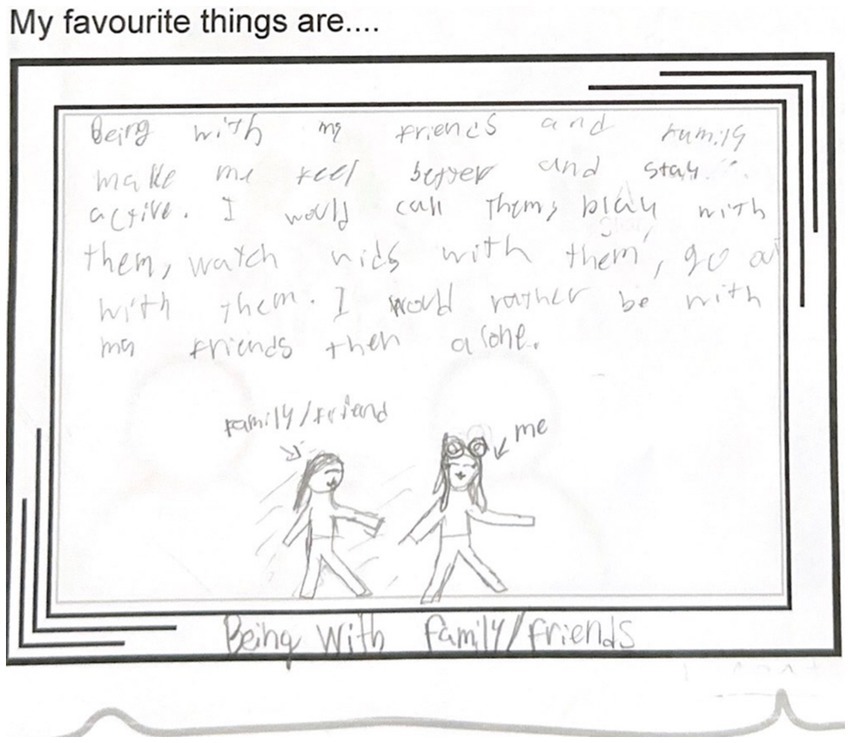 My favourite things are....
Being with my friends and family
make me feel better and stay
active. I would call them, play with
them, watch vids with them, go
with them. I would rather be with
my friends then alone.
family/friend
me
Being with family/friends